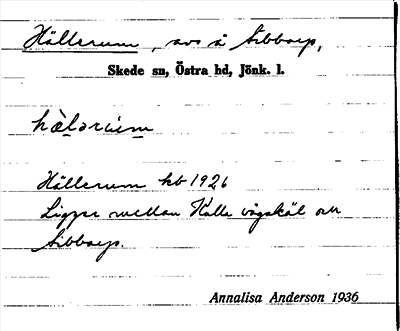 Hällerum, avs å Sibbarp,
Skede sn, Östra hd, Jönk. l.
hä̀lərùm
Hällerum kb 1926
Ligger mellan Kalla vägskäl och
Sibbarp.
Annalisa Anderson 1936